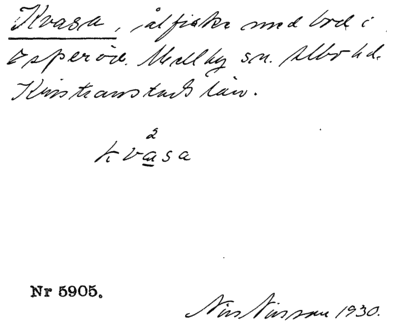 Kvasa, ålfiske med bod i
Esperöd. Mellby sn. Albo hd.
Kristianstads län.
2
kvasa
Nr 5905.
Nils Nilsson 1930.